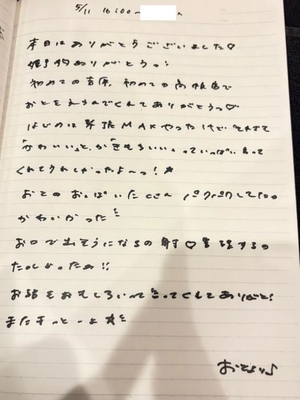 5/11 16:00~
本日はありがとうございました♡
ありがとうっ!
初めての吉原、初めての高級店で
おとをえらんでくれてありがとうっ♡
はじめは緊張MAXやったけど
"かわいい"、とか いっぱい言って
くれてうれしかったよ〜っ!
おとのおっぱいたくさん パクパクしてたの
かわいかった
お口で出そうになるの 射♡管理するの
たのしかったぁ!!
お話もおもしろいって言ってくれてありがと!
また
おとより♪